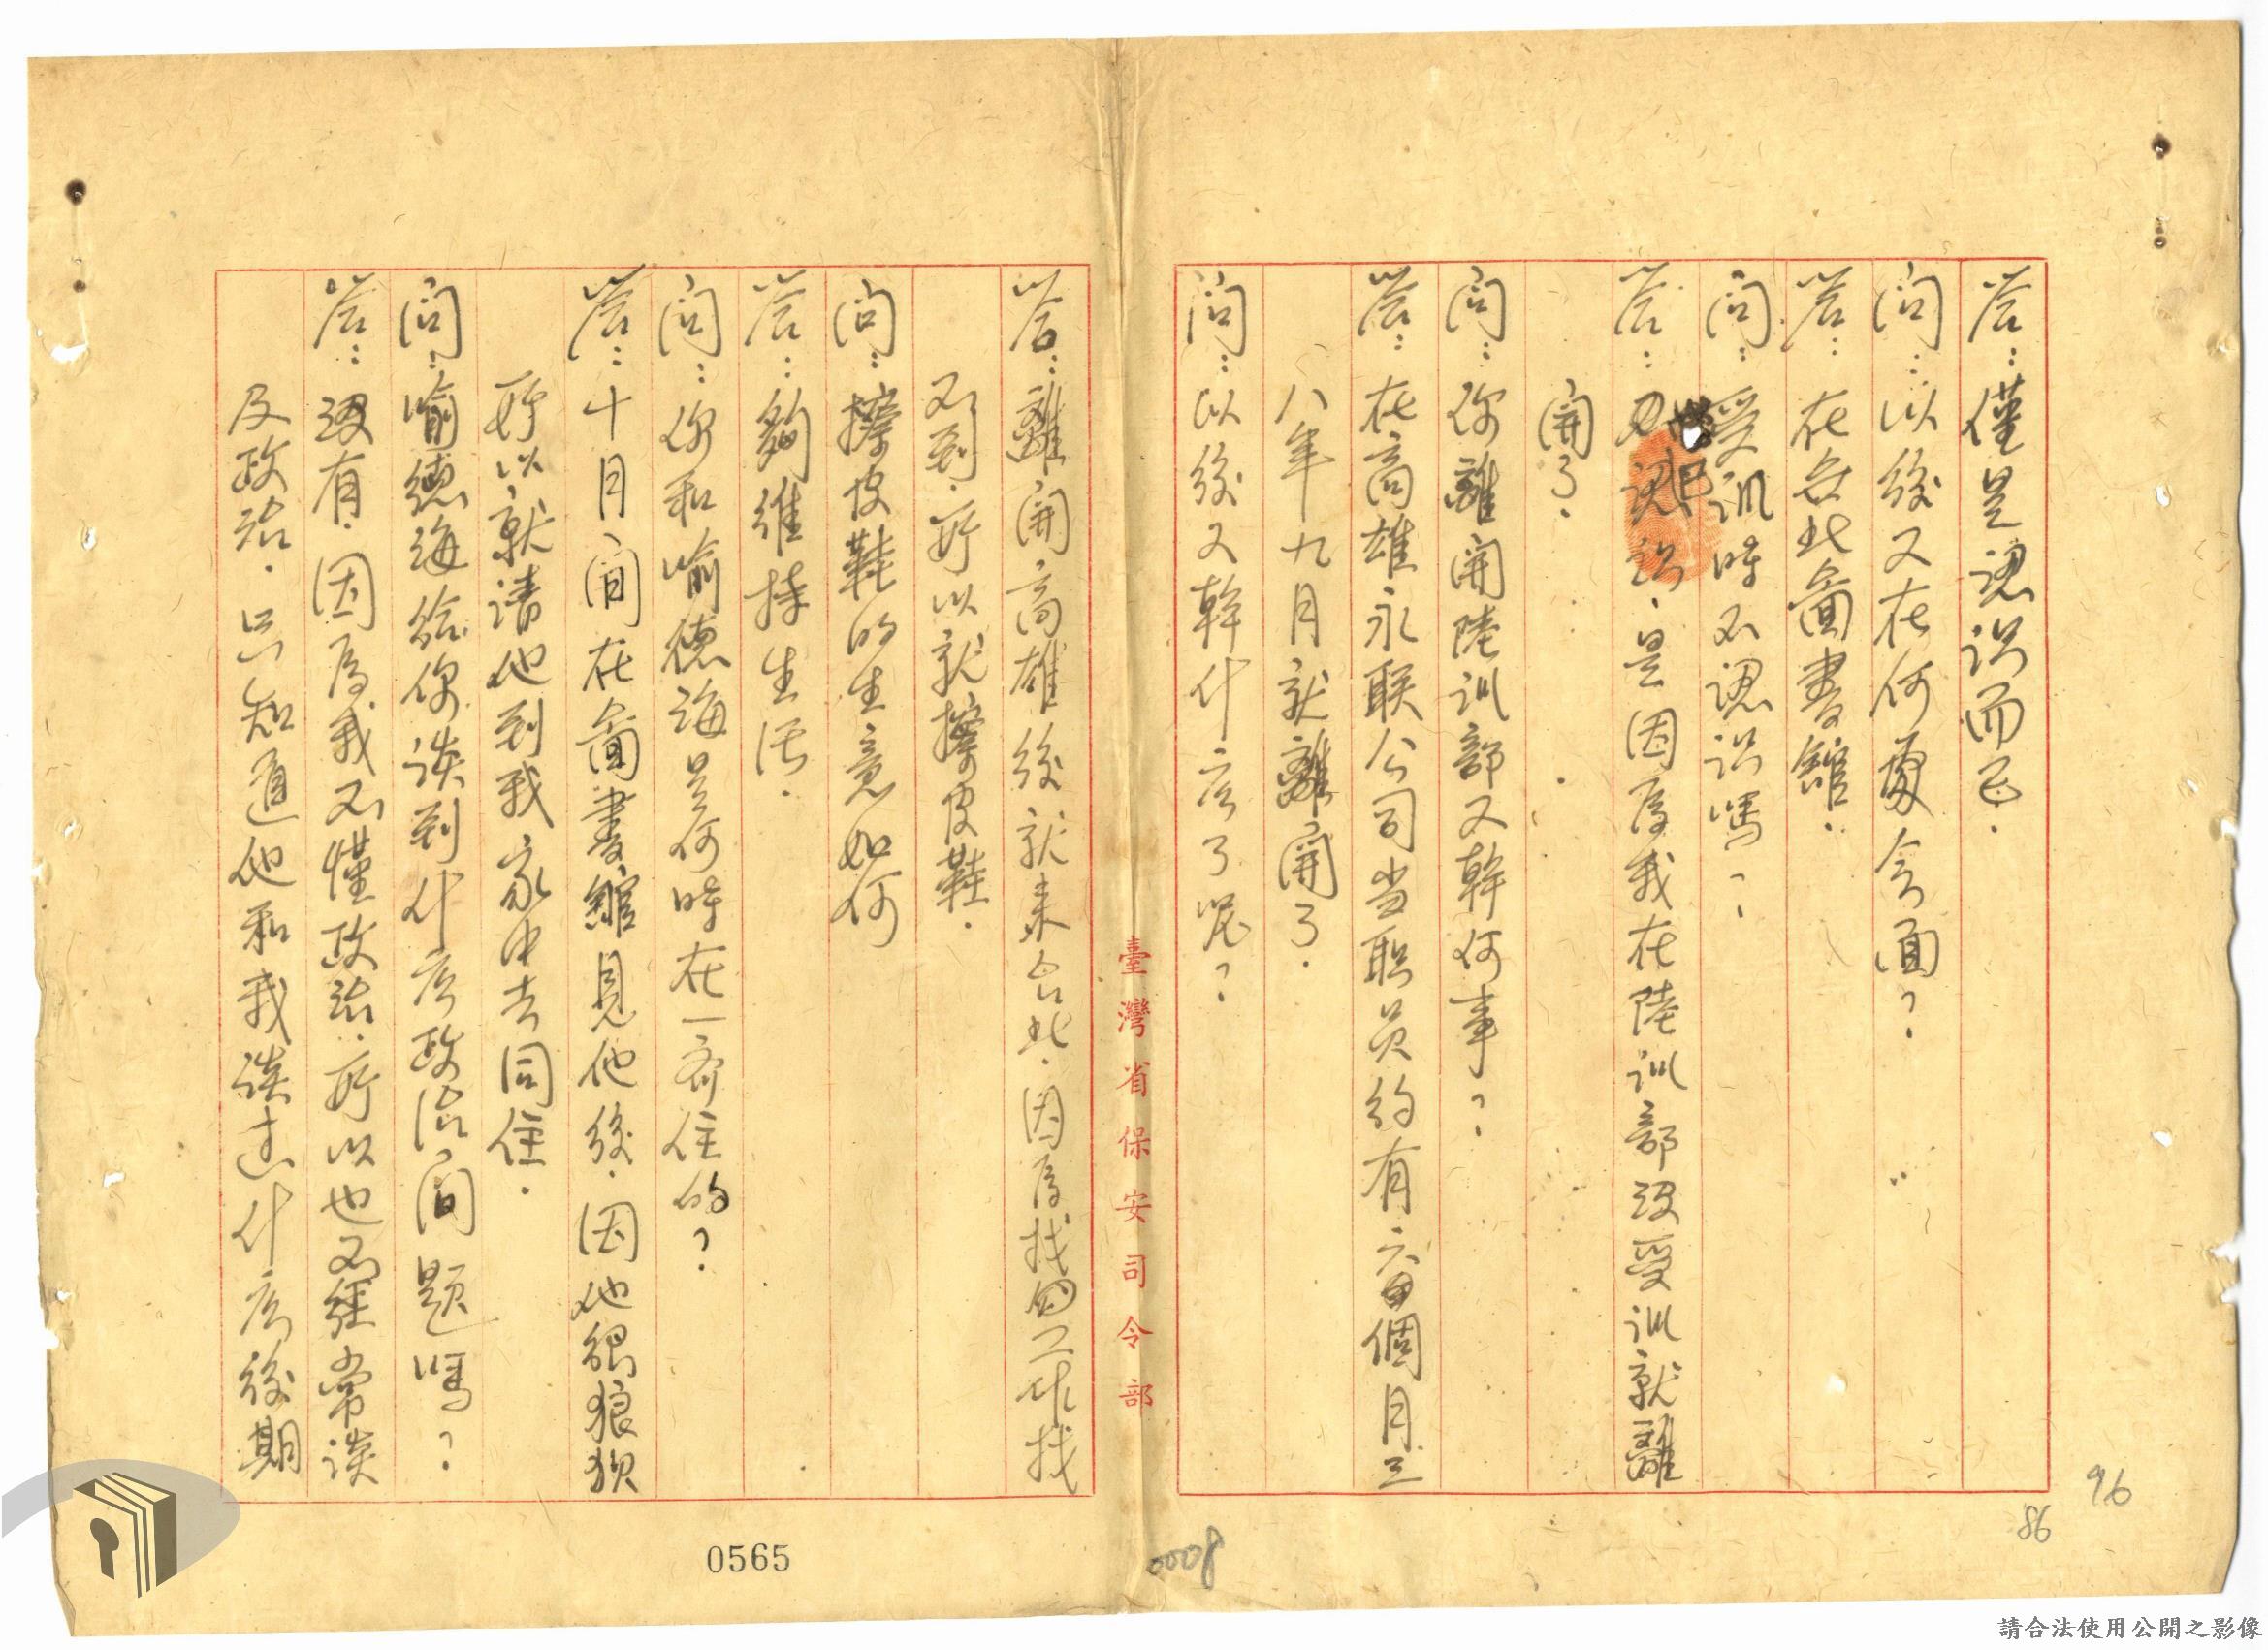 答：僅是認识而已．
问：以後又在何處会面？
答：在台北圖書舘．
问：受训時不認识嗎？
答：認识．是因為我在陸训部没受训就離
開了．
问：你離開陸训部又幹何事？
答：在高雄永联公司当职员约有六個月三
八年九月就離開了．
问：以後又幹什広了呢？
臺灣省保安司令部
答：離開高雄後就来台北．因為找工作找
不到．所以就擦皮鞋．
问：擦皮鞋的生意如何
答：夠維持生活．
问：你和喻德海是何時在一齐住的？
答：十月间在圖書舘見他後．因他很狼狈
所以就请他到我家中去同住．
问：喻德海给你谈到什広政治问题嗎？
答：没有．因為我不懂政治．所以也不經常谈
及政治．只知道他和我谈过什広後期
0565
0008
86
96
請合法使用公開之影像